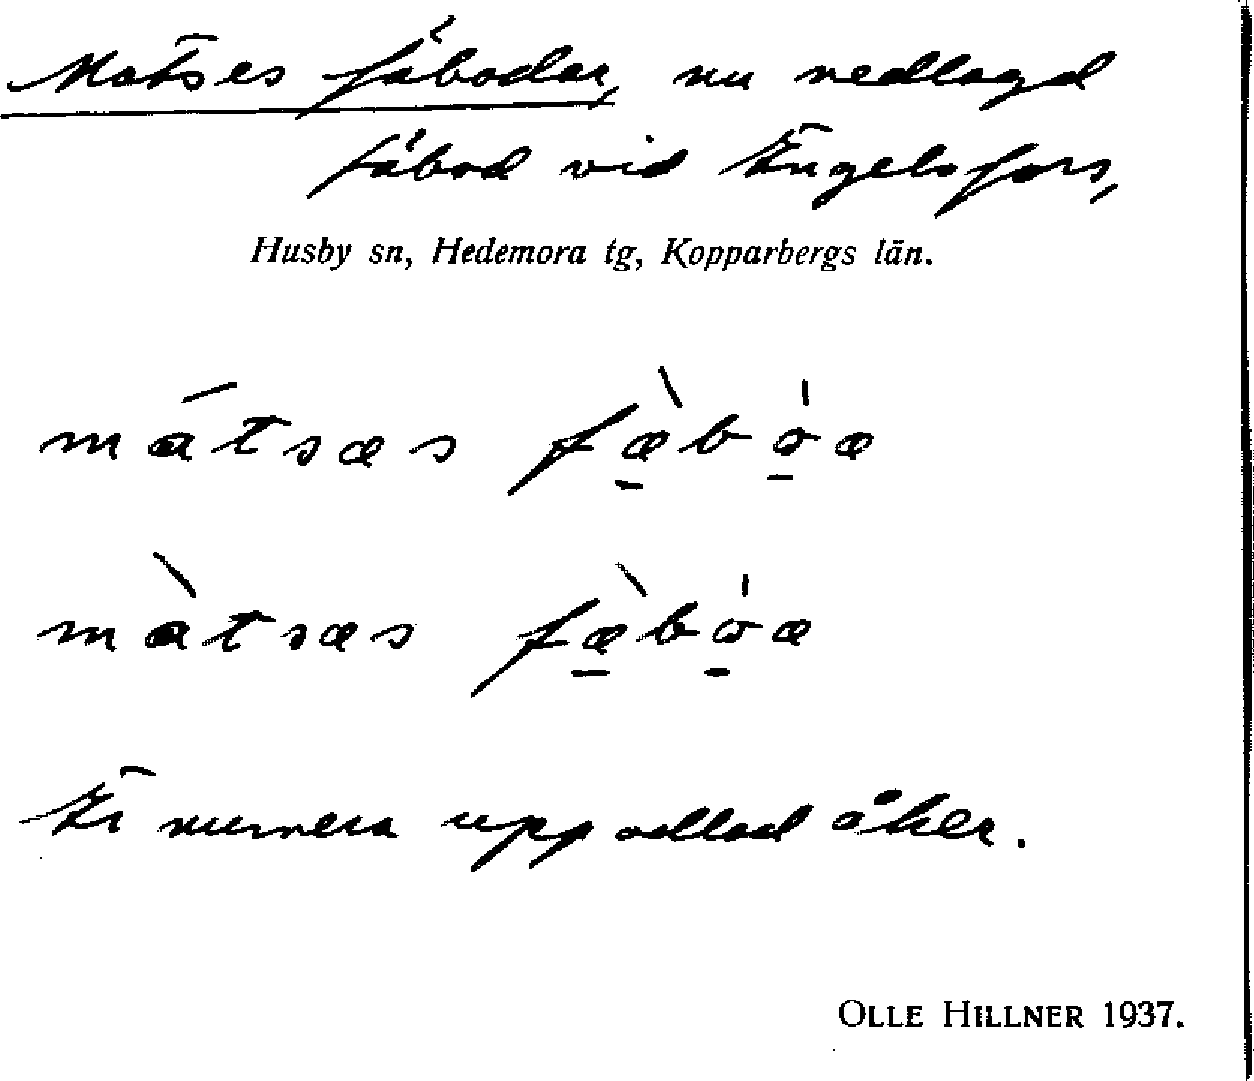 Matses fäbodar, nu nedlagd
fäbod vid Engelsfors,
Husby sn, Hedemora tg, Kopparbergs län.
mátsæs fæ̠̀bo̠̍æ
màtsæs fæ̠̀bo̠̍æ
Är numera uppodlad åker.
OLLE HILLNER 1937.